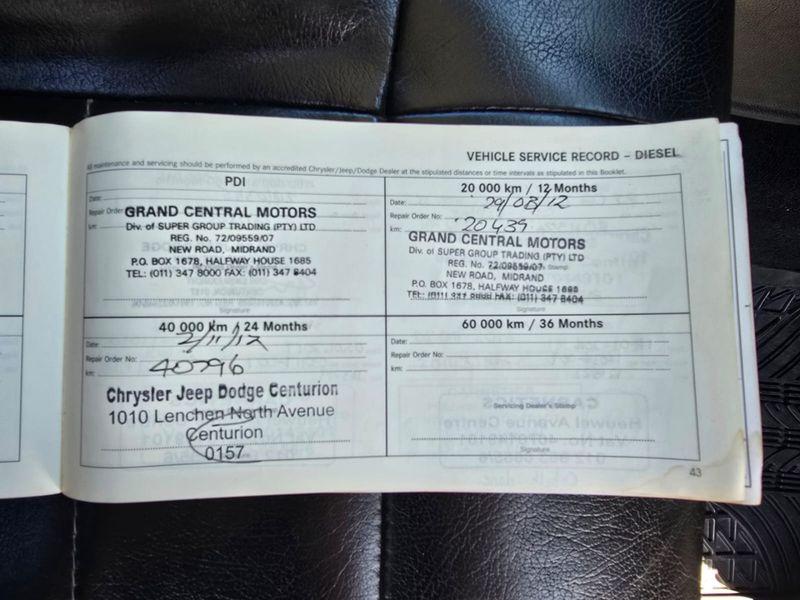 VEHICLE SERVICE RECORD – DIESEL
All maintenance and servicing should be performed by an accredited Chrysler/Jeep/Dodge Dealer at the stipulated distances or time intervals as stipulated in this Booklet.
PDI
Date:
Repair Order
km:
GRAND CENTRAL MOTORS
Div. of SUPER GROUP TRADING (PTY) LTD
REG. No. 72/09559/07
NEW ROAD, MIDRAND
P.O. BOX 1685, HALFWAY HOUSE 1685
TEL: (011) 347 8000 FAX: (011) 347 8404
Signature
20 000 km / 12 Months
Date: 29/03/12
Repair Order No:
km: 20439
GRAND CENTRAL MOTORS
Div. of SUPER GROUP TRADING (PTY) LTD
REG. No. 72/09559/07
NEW ROAD, MIDRAND
P.O. BOX 1678, HALFWAY HOUSE 1685
TEL: (011) 347 8000 FAX: (011) 347 8404
Signature
40 000 km / 24 Months
Date: 2/11/12
Repair Order No:
km: 40796
Chrysler Jeep Dodge Centurion
1010 Lenchen North Avenue
Centurion
0157
60 000 km / 36 Months
Date:
Repair Order No:
km:
Servicing Dealer's Stamp
Signature
43